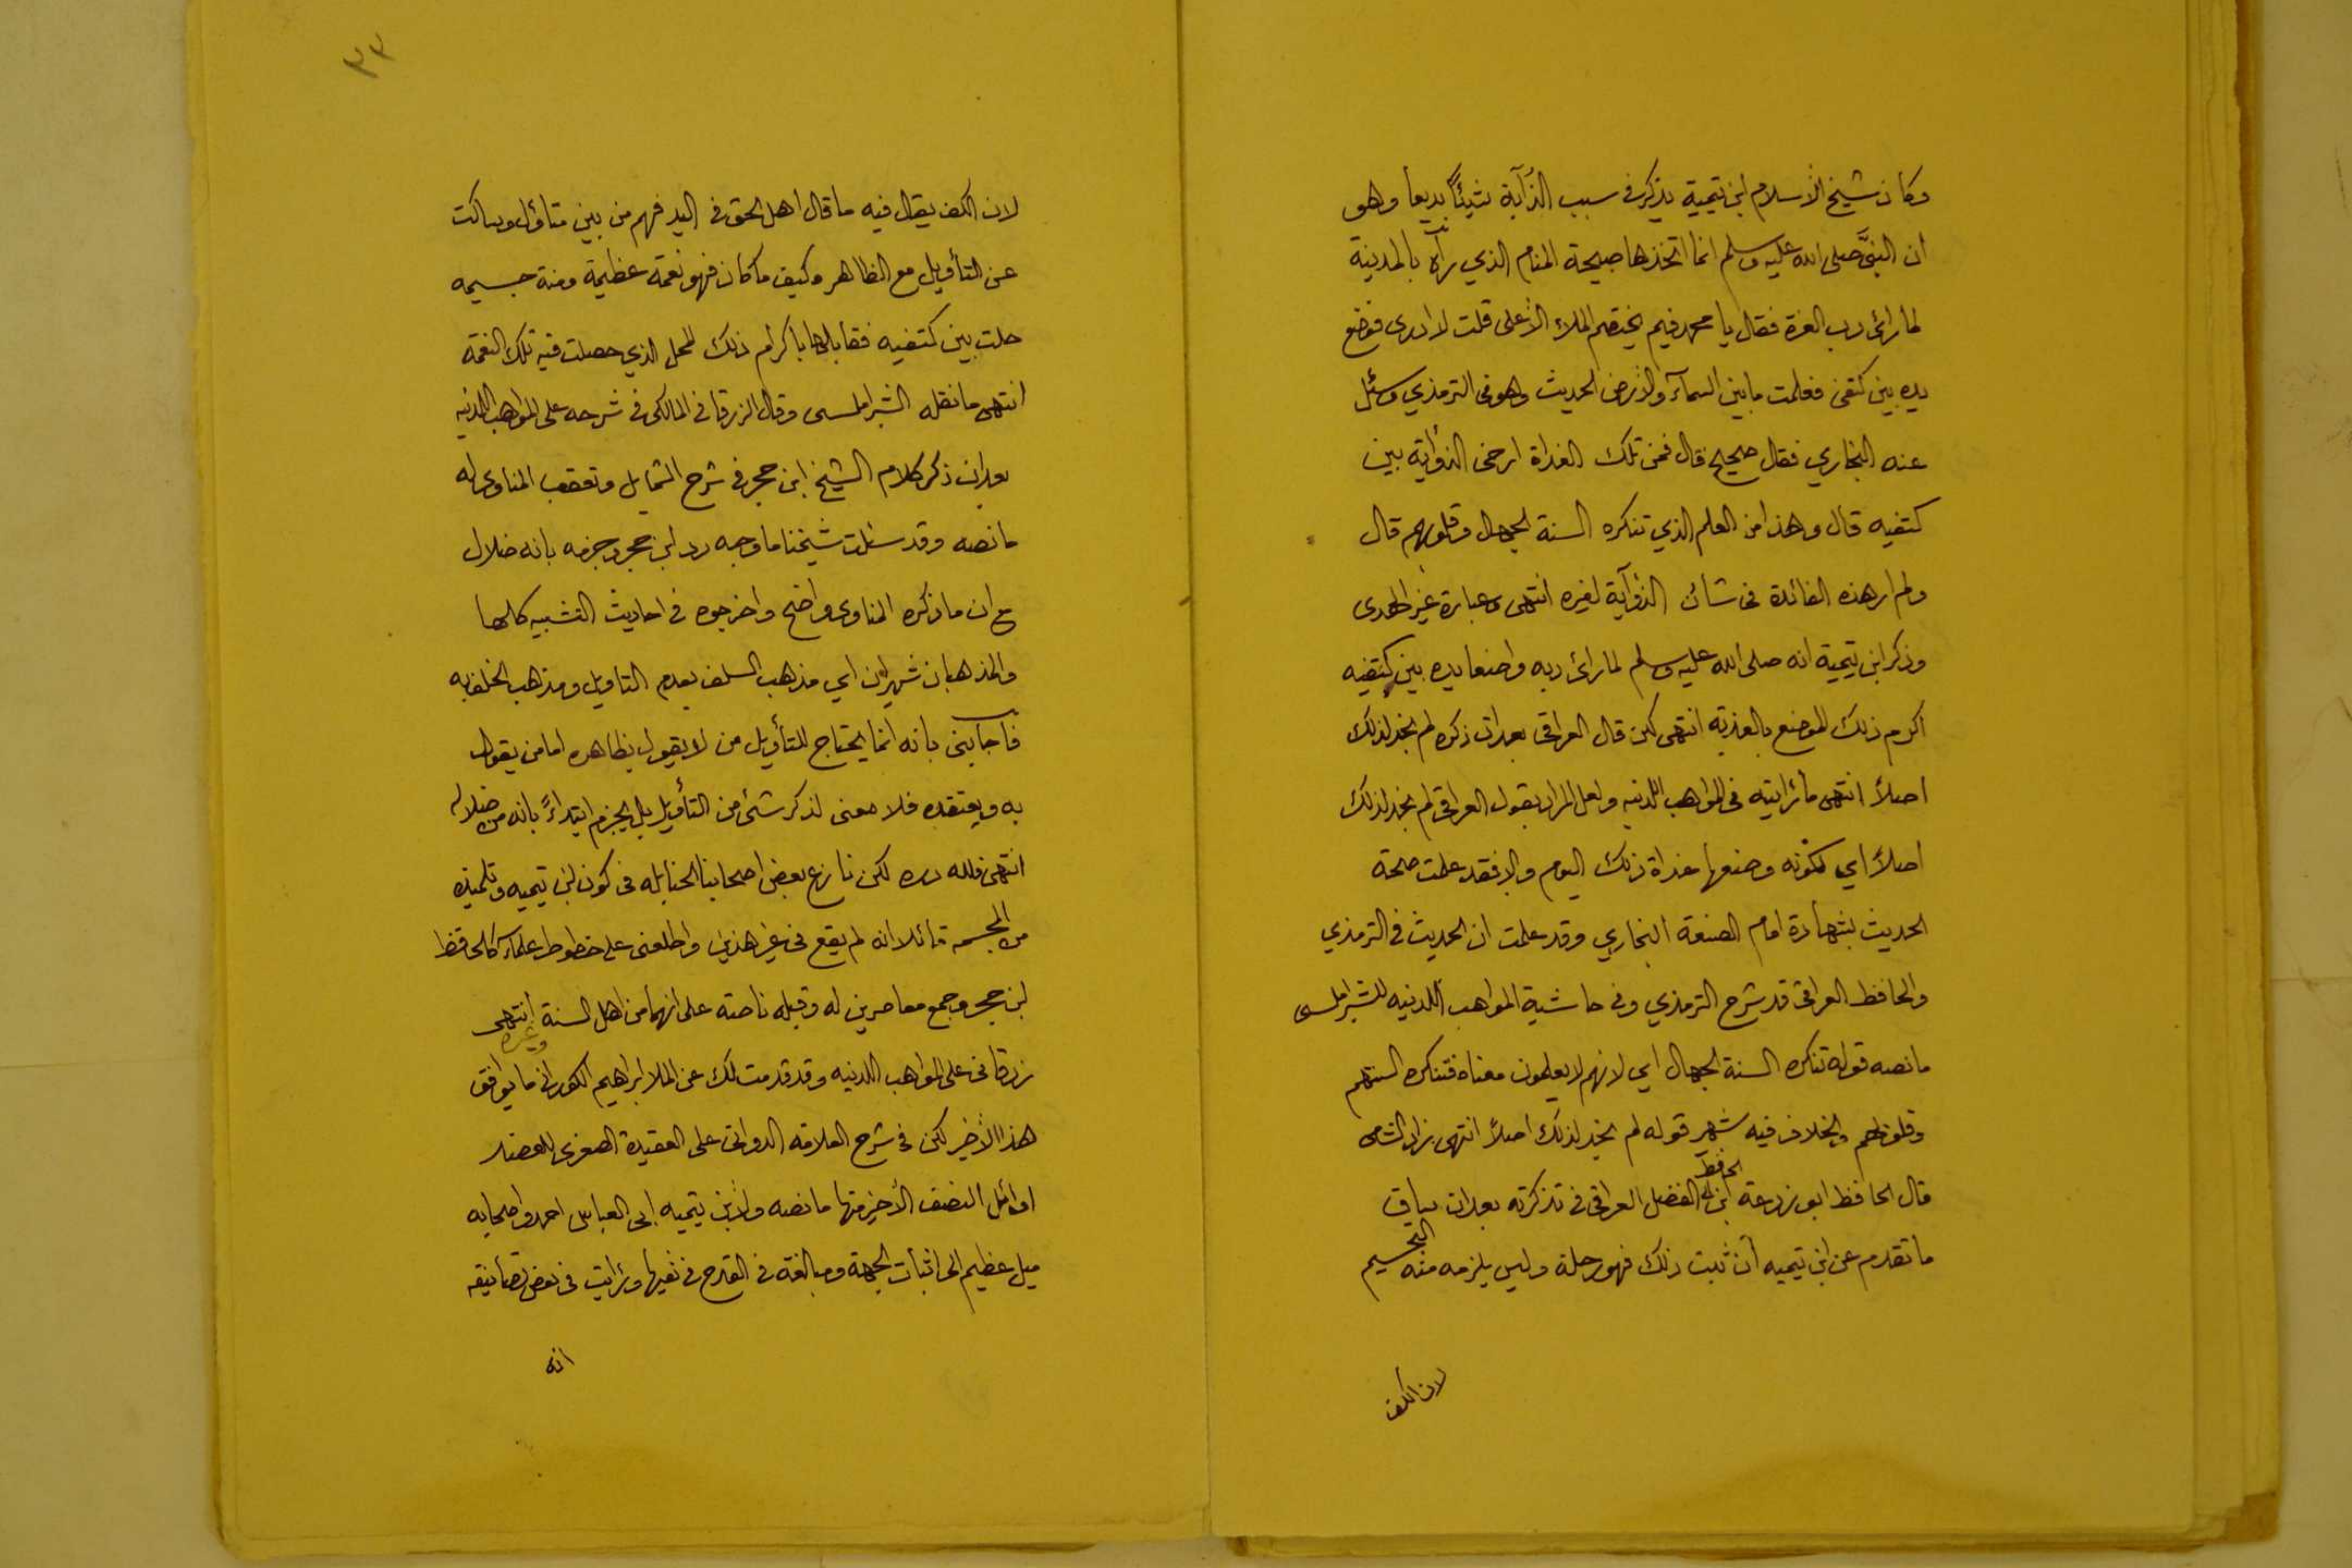 وكان شيخ الاسلام ابن تيمية يذكر في سبب الذؤابة شيئاً بديعا وهو
ان النبيَّ صلى الله عليه وسلم انما اتخذها صبيحة المنام الذي رآه بالمدينة
لما رائ رب العزة فقال يا محمد فيم يختصم الملاء الأعلى قلت لا ادرى فوضع
يده بين كتفى فعلمت ما بين السمآء والارض الحديث وهو فى الترمذي وسئل
عنه البخاري فقال صحيح قال فمن تلك الغداة ارخى الذؤابة بين
كتفيه قال وهذا من العلم الذي تنكره السنة الجهال وقلوبهم قال
ولم ار هذه الفائدة فى شأن الذؤابة لغيره انتهى وعبارة غير الهدى
وذكر ابن تيمية انه صلى الله عليه وسلم لما رائ ربه واضعا يده بين كتفيه
اكرم ذلك الموضع بالعذبه انتهى لكن قال العراقى بعد ان ذكره لم نجد لذلك
اصلاً انتهى ما رايته فى المواهب اللدنيه ولعل المراد بقول العراقى لم نجد لذلك
اصلاً اي لكونه وضعها غداة ذلك اليوم والا فقد علمت صحة
الحديث بشهادة امام الصنعة البخاري وقد علمت ان الحديث فى الترمذي
والحافظ العراقى قد شرح الترمذي وفى حاشية المواهب اللدنيه للشبراملسى
ما نصه قوله تنكره السنة الجهال اي لانهم لا يعلمون معناه فتنكره السنتهم
وقلوبهم والخلاف فيه شهير قوله لم نجد لذلك اصلاً انتهى زاد الشامى
قال الحافظ ابو زرعة ابن الحافظ ابى الفضل العراقى فى تذكرته بعد ان ساق
ما تقدم عن ابن تيميه ان ثبت ذلك فهو رحلة وليس يلزمه منه التجسيم
لان الكف
٣٣
لان الكف يقال فيه ما قال اهل الحق فى اليد فهم من بين متأول وساكت
عن التأويل مع الظاهر وكيف ما كان فهو نعمة عظيمة ومنة جسيمه
حلت بين كتفيه فقابلها باكرام ذلك المحل الذي حصلت فيه تلك النعمة
انتهى ما نقله الشبراملسى وقال الزرقانى المالكى فى شرحه على المواهب اللدنيه
بعد ان ذكر كلام الشيخ ابن حجر فى شرح الشمايل وتعقب المناوى له
ما نصه وقد سئلت شيخنا ما وجه رد ابن حجر وجزمه بانه ضلال
مع ان ما ذكره المناوى واضح واخرجوه فى احاديث التشبيه كلها
والمذهبان شهيران اي مذهب السلف بعدم التاويل ومذهب الخلف به
فاجابنى بانه انما يحتاج للتأويل من لا يقول بظاهره اما من يقول
به ويعتقده فلا معنى لذكر شئ من التأويل بل يجزم ابتداءً بانه من ضلاله
انتهى فلله دره لكن نازع بعض اصحابنا الحنابله فى كون ابن تيميه وتلميذه
من المجسمه قائلا انه لم يقع فى غير هذين واطلعنى على خطوط علماء كالحافظ
ابن حجر وجمع معاصرين له وقبله ناصة على انهما من اهل السنة انتهى
زرقانى على المواهب اللدنيه وقد قدمت لك عن الملا ابراهيم الكورانى وغيره ما يوافق
هذا الأخير لكن فى شرح العلامه الدوانى على العقيدة الصغرى للعضد
اوائل النصف الأخير منها ما نصه ولابن تيميه ابى العباس احمد واصحابه
ميل عظيم الى اثبات الجهة ومبالغة فى القدح فى نفيها ورايت فى بعض تصانيفه
انه